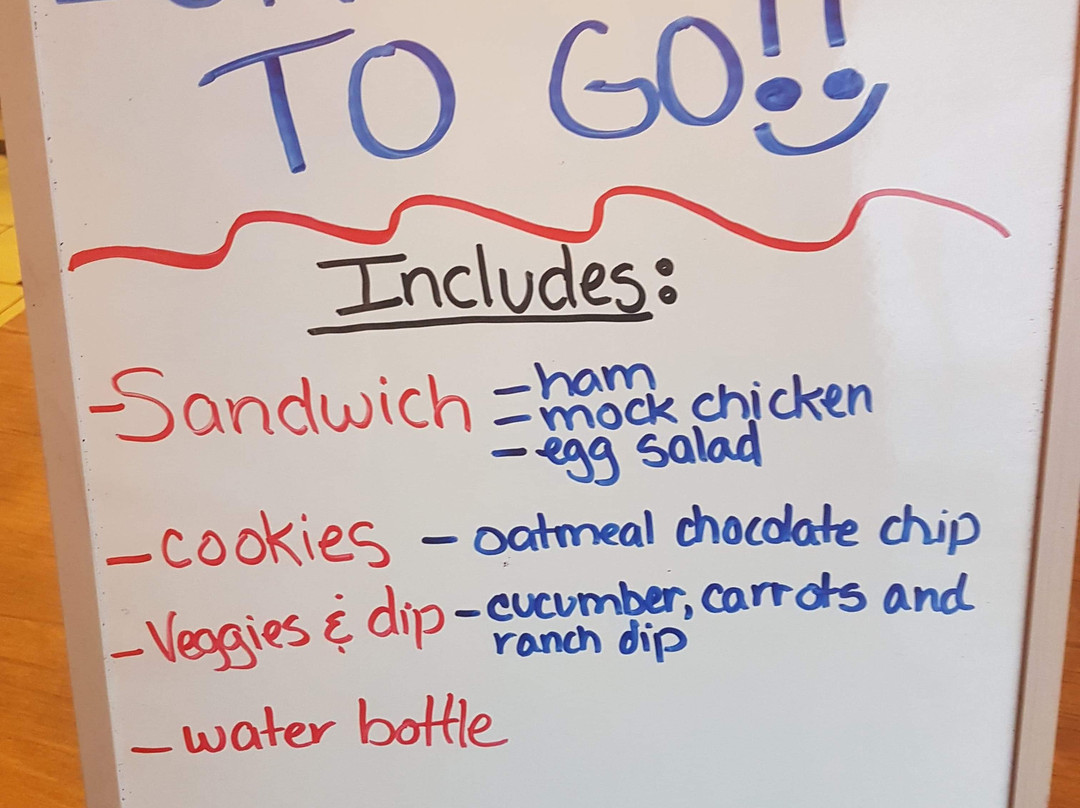 TO GO!!
Includes:
-Sandwich -ham
-mock chicken
-egg salad
-cookies - oatmeal chocolate chip
-Veggies & dip -cucumber, carrots and
ranch dip
-water bottle